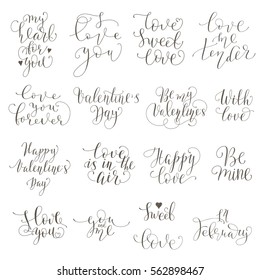 my
heart
for
you
I
love
you
Love
Sweet
love
Love
me
tender
Love
you
forever
Valentine's
Day
Be my
Valentines
With
love
Happy
Valentine's
Day
Love
is in the
air
Happy
love
Be
mine
I love
you
you
me
Sweet
love
14
February
shutterstock.com · 562898467